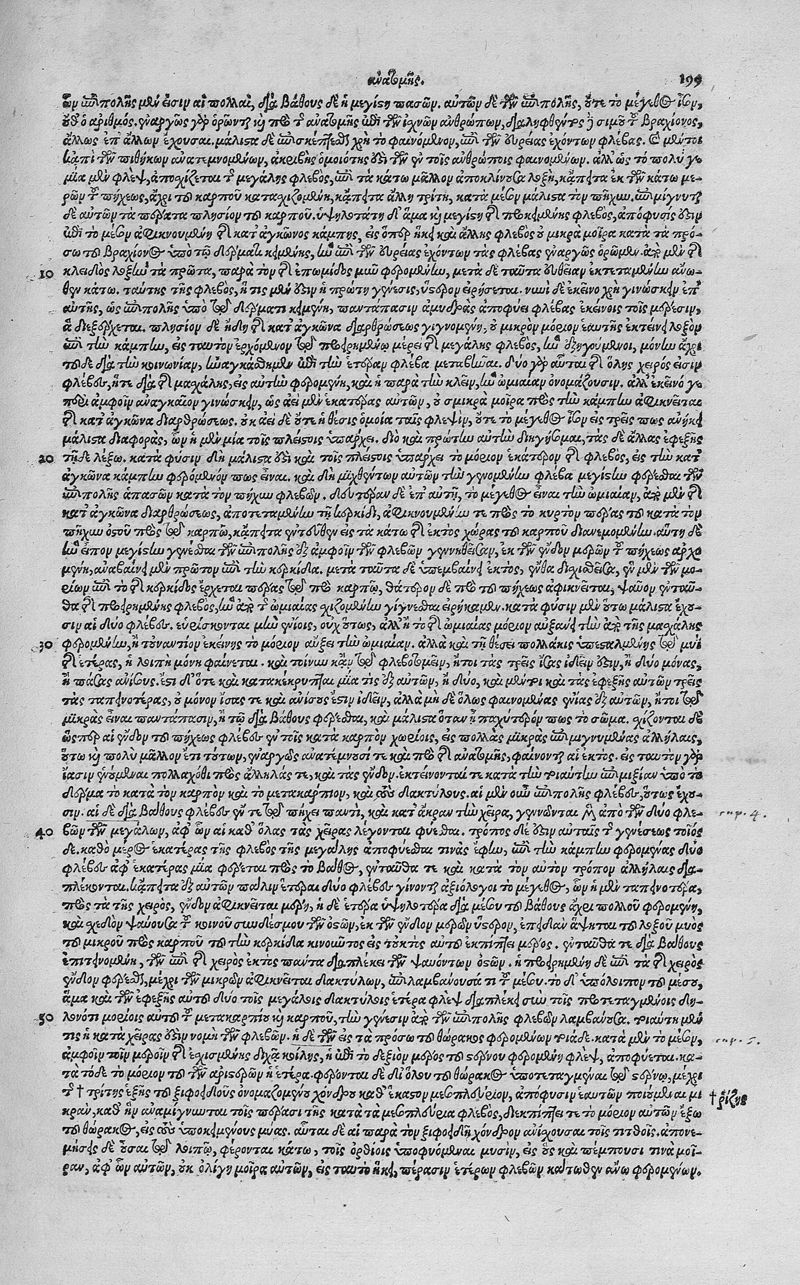 ἀνατομῆς. 199
ὧν ἐπιπολῆς μέν εἰσιν αἱ πολλαὶ, διὰ βάθους δὲ ἡ μεγίστη πασῶν. αὐτῶν δὲ τῶν ἐπιπολῆς, οὔτε τὸ μέγεθος ἴσον,
οὔθ' ὁ ἀριθμός. ἐναργῶς γὰρ ὁρῶνται καὶ πρὸ τῆς ἀνατομῆς ἐπὶ τῶν ἰσχνῶν ἀνθρώπων, διαληφθέντος τοῦ βραχίονος,
ἄλλως ἐπ' ἄλλων ἔχουσαι. μάλιστα δὲ ἐπισκέπτεσθαι χρὴ τὸ φαινόμενον, ἐπὶ τῶν εὐρείας ἐχόντων φλέβας. οὐ μέντοι
κἀπὶ τῶν πιθήκων ἀνατεμνομένων, ἀκριβὴς ὁμοιότης ἐστὶ τῶν ἐν τοῖς ἀνθρώποις φαινομένων. ἀλλ' ὡς τὸ πολύ γε
μία μὲν φλὲψ, ἀποσχίζεται τῆς μεγάλης φλεβὸς, ἐπὶ τὰ κάτω μᾶλλον ἀποκλίνουσα λοξὴ, κἄπειτα ἐκ τῶν κάτω με-
ρῶν τοῦ πήχεως, ἄχρι τοῦ καρποῦ κατασχιζομένη, κἄπειτα ἄλλη τρίτη, κατὰ μέσον μάλιστα τὸν πῆχυν. ἐπιμίγνυται
δὲ αὐτῶν τὰ πέρατα πλησίον τοῦ καρποῦ. ὑψηλοτάτη δ' ἅμα καὶ μεγίστη τῆς προκειμένης φλεβὸς, ἀπόφυσίς ἐστιν
ἐπὶ τὸ μέσον ἀφικνουμένη τῆς κατ' ἀγκῶνος καμπῆς, εἰς ὅπερ ἥκει καὶ ἄλλης φλεβὸς οὐ μικρὰ μοῖρα κατὰ τὰ πρό-
σω τοῦ βραχίονος ὑπὸ τῷ δέρματι κειμένης, ἣν ἐπὶ τῶν εὐρείας ἐχόντων τὰς φλέβας ἐναργῶς ὁρῶμεν. ἀπὸ μὲν τῆς
10 κλειδὸς λοξὴν τὰ πρῶτα, παρὰ τὸν τῆς ἐπωμίδος μῦν φερομένην, μετὰ δὲ ταῦτα εὐθεῖαν ἐκτεταμένην ἄνω-
θεν κάτω. ταύτης τῆς φλεβὸς, ἥ τις μέν ἐστιν ἡ πρώτη γένεσις, ὕστερον εἰρήσεται. νυνὶ δὲ ἐκεῖνο χρὴ γινώσκειν ἐπ'
αὐτῆς, ὡς ἐπιπολῆς ὑπὸ τῷ δέρματι κειμένη, παντάπασιν ἀμυδρὰς ἀποφύει φλέβας ἐκείνοις τοῖς μέρεσιν,
ἃ διεξέρχεται. πλησίον δὲ ἤδη τῆς κατ' ἀγκῶνα διαρθρώσεως γιγνομένη, οὐ μικρὸν μόριον ἑαυτῆς ἐκτείνει λοξὸν
ἐπὶ τὴν καμπὴν, εἰς ταὐτὸν ἐρχόμενον τῷ προειρημένῳ μέρει τῆς μεγάλης φλεβὸς, ἣν ἐξηγούμενοι, μόνην ἄχρι
τοῦδε διὰ τὴν κοινωνίαν, ἠναγκάσθημεν ἐπὶ τὴν ἑτέραν φλέβα μεταβῆναι. δύο γὰρ αὗται τῆς ὅλης χειρός εἰσιν
φλέβες, ἥτε διὰ τῆς μασχάλης, εἰς αὐτὴν φερομένη, καὶ ἡ παρὰ τὴν κλεῖν, ἣν ὠμιαίαν ὀνομάζουσιν. ἀλλ' ἐκεῖνό γε
περὶ ἀμφοῖν ἀναγκαῖον γινώσκειν, ὡς ἀεὶ μὲν ἑκατέρας αὐτῶν, οὐ σμικρὰ μοῖρα πρὸς τὴν καμπὴν ἀφικνεῖται
τῆς κατ' ἀγκῶνα διαρθρώσεως. οὐκ ἀεὶ δὲ οὔτε ἡ θέσις ὁμοία ταῖς φλεψὶν, οὔτε τὸ μέγεθος ἴσον εἰς τρεῖς πως ἀνήκει
μάλιστα διαφορὰς, ὧν ἡ μὲν μία τοῖς πλείστοις ὑπάρχει. διὸ καὶ πρώτην αὐτὴν διηγήσομαι, τὰς δὲ ἄλλας ἐφεξῆς
20 τῇδε λέξω. κατὰ φύσιν δὴ μάλιστά ἐστι καὶ τοῖς πλείστοις ὑπάρχει τὸ μόριον ἑκάτερον τῆς φλεβὸς, εἰς τὴν κατ'
ἀγκῶνα καμπὴν φερόμενον ἴσον εἶναι. καὶ δὴ μιχθέντων αὐτῶν τὴν γενομένην φλέβα μεγίστην φέρεσθαι τῶν
ἐπιπολῆς ἁπασῶν κατὰ τὸν πῆχυν φλεβῶν. δευτέραν δὲ ἐπ' αὐτῇ, τὸ μέγεθος εἶναι τὴν ὠμιαίαν, ἀπὸ μὲν τῆς
κατ' ἀγκῶνα διαρθρώσεως, ἀποτεταμένην τῇ κερκίδι, ἀφικνουμένην τε πρὸς τὸ κυρτὸν πέρας τοῦ κατὰ τὸν
πῆχυν ὀστοῦ πρὸς τῷ καρπῷ, κἄπειτα ἐντεῦθεν εἰς τὰ κάτω τῆς ἐκτὸς χώρας τοῦ καρποῦ διανεμομένην. αὕτη δὲ
ἣν εἶπον μεγίστην γενέσθαι τῶν ἐπιπολῆς ἐξ ἀμφοῖν τῶν φλεβῶν γεννηθεῖσαν, ἐκ τῶν ἔνδον μερῶν τοῦ πήχεως ἀρχο-
μένη, ἀναβαίνει μὲν πρῶτον ἐπὶ τὴν κερκίδα. μετὰ ταῦτα δὲ ὑπερβαίνει ἐκτὸς, ἔνθα δισχιδεῖσα, ἓν μὲν τῶν μο-
ρίων ἐπὶ τὸ τῆς κερκίδος ἔρχεται πέρας τῷ πρὸς καρπῷ, θάτερον δὲ πρὸς τὸ τοῦ πήχεως ἀφικνεῖται, ψαῦον ἐνταῦ-
θα τῆς προειρημένης φλεβὸς, ἣν ἀπὸ τῆς ὠμιαίας σχιζομένην γίγνεσθαι εἰρήκαμεν. κατὰ φύσιν μὲν οὕτω μάλιστα ἔχου-
σιν αἱ δύο φλέβες. εὑρίσκονται μὴν ἐνίοις, οὐχ οὕτως, ἀλλ' ἢ τὸ τῆς ὠμιαίας μόριον αὐξάνει τὴν ἀπὸ τῆς μασχάλης
30 φερομένην, ἢ τοὐναντίον ἐκείνης τὸ μόριον αὔξει τὴν ὠμιαίαν. ἀλλὰ καὶ τῇ θέσει πολλάκις ὑπεσταλμένης τῷ μυῒ
τῆς ἑτέρας, ἡ λοιπὴ μόνη φαίνεται. καὶ τοίνυν κἀν τῷ φλεβοτομεῖν, ἤτοι τὰς τρεῖς ἴσας ἰδεῖν ἐστιν, ἢ δύο μόνας,
ἢ πάσας ἀνίσους. ἔστι δ' ὅτε καὶ κατακέκρυπται μία τις ἐξ αὐτῶν, ἢ δύο, καὶ μέντοι καὶ τὰς ἐφεξῆς αὐτῶν τρεῖς
τὰς ταπεινοτέρας, οὐ μόνον ἴσας τε καὶ ἀνίσους ἔστιν ἰδεῖν, ἀλλὰ μὴ δὲ ὅλως φαινομένας ἐνίας ἐξ αὐτῶν, ἤτοι τῷ
μικρὰς εἶναι παντάπασιν, ἢ τῷ διὰ βάθους φέρεσθαι, καὶ μάλιστα ὅταν ᾖ παχύτερόν πως τὸ σῶμα. σχίζονται δὲ
ὥσπερ αἱ ἔνδον τοῦ πήχεως φλέβες ἐν τοῖς κατὰ καρπὸν χωρίοις, εἰς πολλὰς μικρὰς ἐπιμιγνυμένας ἀλλήλαις,
οὕτω καὶ πολὺ μᾶλλον ἔτι τούτων, ἐναργῶς ἀνατέμνουσί τε καὶ πρὸ τῆς ἀνατομῆς, φαίνονται αἱ ἐκτός. εἰς ταὐτὸν γὰρ
ἴασιν ἑνούμεναι πολλαχόθι πρὸς ἀλλήλας τε, καὶ τὰς ἔνδον. ἐκτείνονταί τε κατὰ τὴν τοιαύτην ἐπιμιξίαν ὑπὸ τὸ
δέρμα τὸ κατὰ τὸν καρπὸν καὶ τὸ μετακάρπιον, καὶ τοὺς δακτύλους. αἱ μὲν οὖν ἐπιπολῆς φλέβες, οὕτως ἔχου-
σιν. αἱ δὲ διὰ βάθους φλέβες ἔν τε τῷ πήχει παντὶ, καὶ κατ' ἄκραν τὴν χεῖρα, γεννῶνται μὲν ἀπὸ τῶν δύο φλε- cap. 4.
40 βῶν τῶν μεγάλων, ἀφ' ὧν αἱ καθ' ὅλας τὰς χεῖρας λέγονται φύεσθαι. τρόπος δέ ἐστιν αὐταῖς τῆς γενέσεως τοῖος
δέ. καθὸ μέρος ἑκατέρας τῆς φλεβὸς τῆς μεγάλης ἀποφύεσθαί τινας ἔφην, ἐπὶ τὴν καμπὴν φερομένας δύο
φλέβας ἀφ' ἑκατέρας μία φέρεται πρὸς τὸ βάθος, ἐνταῦθά τε καὶ κατὰ τὸν αὐτὸν τρόπον ἀλλήλαις δια-
πλέκονται. κἄπειτα ἐξ αὐτῶν πάλιν ἕτεραι δύο φλέβες γίνονται ἀξιόλογοι τὸ μέγεθος, ὧν ἡ μὲν ταπεινοτέρα,
πρὸς τὰ τῆς χειρὸς, ἔνδον ἀφικνεῖται μέρη, ἡ δὲ ἑτέρα ὑψηλοτέρα διὰ μέσου τοῦ βάθους ἄχρι πολλοῦ φερομένη,
καὶ σχεδὸν ψαύουσα τοῦ κοινοῦ συνδέσμου τῶν ὀστῶν, ἐκ τῶν ἔνδον μερῶν ὕστερον, ἐπειδὰν ἅψηται τοῦ λοξοῦ μυὸς
τοῦ μικροῦ πρὸς καρποῦ τοῦ τὴν κερκίδα κινοῦντος εἰς τοὐκτὸς αὐτοῦ ἐκπίπτει μέρος. ἐνταῦθά τε διὰ βάθους
ἐπιτεινομένη, τῶν ἐπὶ τῆς χειρὸς ἐκτὸς πάντα διαπλέκει τῶν ψαυόντων ὀστῶν. ἡ προειρημένη δὲ ἐπὶ τὰ τῆς χειρὸς
ἔνδον φέρεσθαι, μέχρι τῶν μικρῶν ἀφικνεῖται δακτύλων, ἐπιλαμβάνουσά τι τοῦ μέσου. τὸ δ' ὑπόλοιπον τοῦ μέσου,
ἅμα καὶ τῶν ἐφεξῆς αὐτοῦ δύο τοῖς μεγάλοις δακτύλοις ἑτέρα φλὲψ διαπλέκει σὺν τοῖς προτεταγμένοις δη-
50 λονότι μορίοις αὐτοῦ τοῦ μετακαρπίου καὶ καρποῦ, τὴν γένεσιν ἀπὸ τῶν ἐπιπολῆς φλεβῶν λαμβάνουσα. τοιαύτη μέν
τις ἡ κατὰ χεῖράς ἐστιν νομὴ τῶν φλεβῶν. ἡ δὲ τῶν εἰς τὰ πρόσω τοῦ θώρακος φερομένων τοιάδε. κατὰ μὲν τὸ μέσον, cap. 5.
ἀμφοῖν τοῖν μεροῖν τῆς ἐσχισμένης δίχα κοίλης, ἡ ἐπὶ τὸ δεξιὸν μέρος τοῦ στέρνου φερομένη φλὲψ, ἀποφύεται. κα-
τὰ τόδε τὸ μόριον τῶν ἀριστερῶν ἡ ἑτέρα. φέρονται δὲ δι' ὅλου τοῦ θώρακος ὑποτεταγμέναι τῷ στέρνῳ, μέχρι
τοῦ † τρίτης ἑξῆς τοῦ ξιφοειδοῦς ὀνομαζομένου χόνδρου καθ' ἕκαστον μεσοπλεύριον, ἀπόφυσιν ἑαυτῶν ποιούμεναι μι- † ῥίζης
κρὰν, καθ' ἣν ἀναμίγνυνται τοῖς πέρασι τῆς κατὰ τὰ μεσοπλεύρια φλεβὸς, διεκπίπτει τε τὸ μόριον αὐτῶν ἔξω
τοῦ θώρακος, εἰς τοὺς ὑποκειμένους μύας. αὗται δὲ αἱ παρὰ τὸν ξιφοειδῆ χόνδρον ἀνίσχουσαι τοῖς τιτθοῖς. ἀπονε-
μηθεῖσαι δὲ ὅσαι τῷ λοιπῷ, φέρονται κάτω, τοῖς ὀρθίοις ὑποφυόμεναι μυσὶν, εἰς οὓς καὶ πέμπουσί τινα μοῖ-
ραν, ἀφ' ὧν αὐτῶν, οὐκ ὀλίγη μοῖρα αὐτῶν, εἰς ταὐτὸ ἥκει, πέρασιν ἑτέρων φλεβῶν κάτωθεν ἄνω φερομένων.